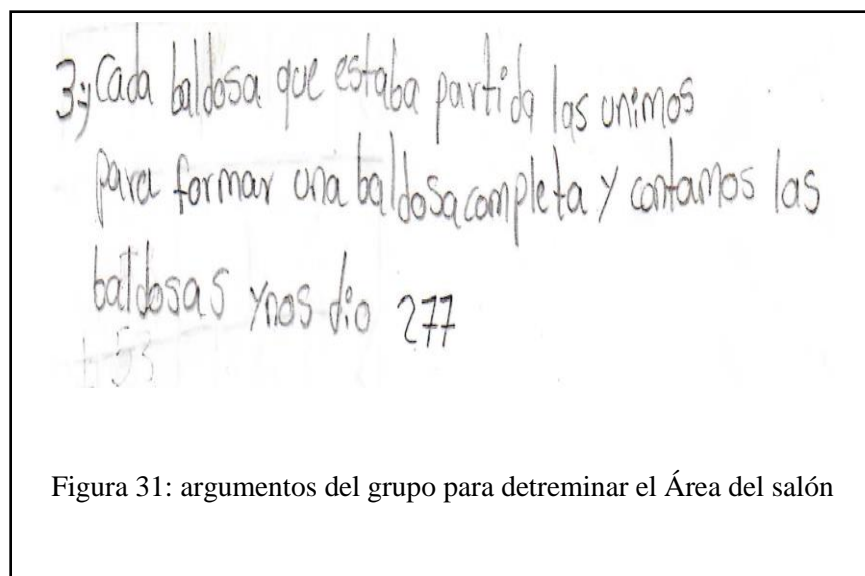 3:) Cada baldosa que estaba partida las unimos
para formar una baldosa completa y contamos las
baldosas y nos dio 277
Figura 31: argumentos del grupo para detreminar el Área del salón